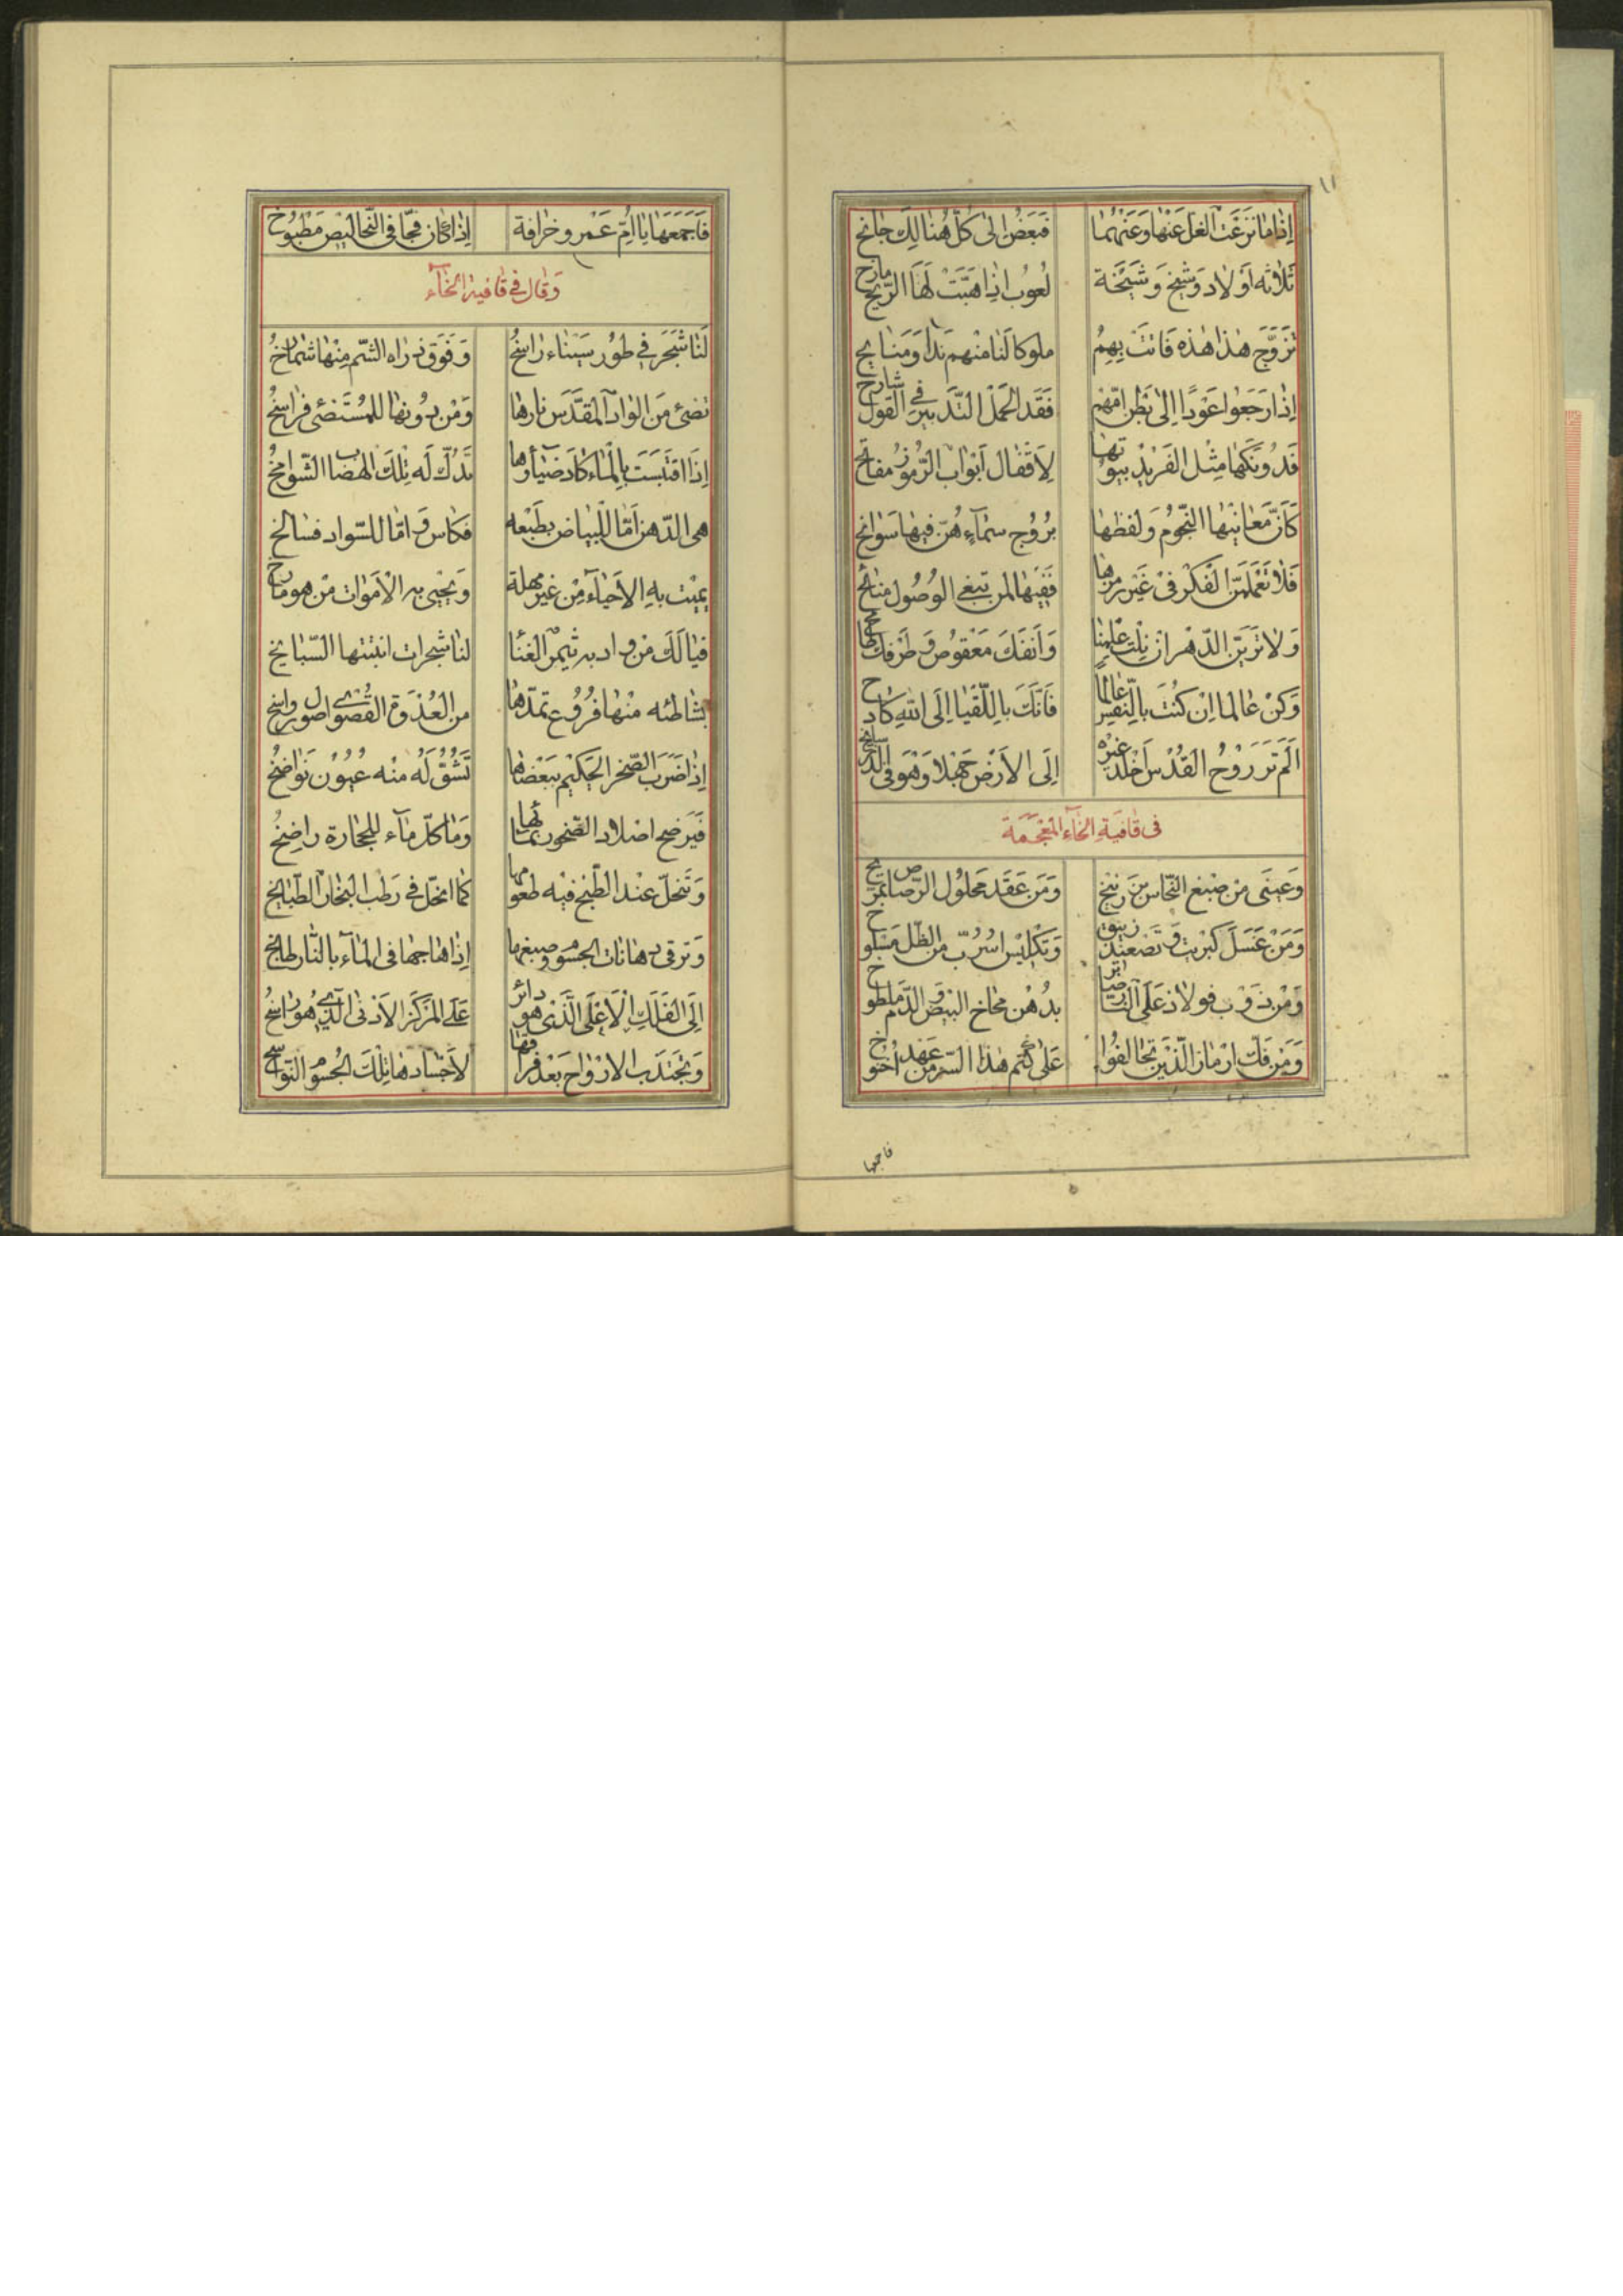 ١١
إِذَا مَا نَزَعْتَ الغلّ عَنْهَا وَعَنْهُمَا فَبَعْضٌ إِلىٰ كُلٍّ هُنَالِكَ جَانِحُ
ثَلَاثَة أَوْلَاد وَشَيْخ وَشَيْخَة لَعُوب إِذَا هَبَّتْ لَهَا الرِّيحُ مَازِح
تُزَوِّج هٰذَا هٰذِهِ فَاتَتْ بِهِمْ ملوكا لَنَا مِنْهم نَدًا وَمَنَايح
إِذَا رَجَعُوا عَوْدًا إِلىٰ بَطْنِ امّهِمْ فَقَد الحمل التَّدبِير فِي القَوْل شَارِح
فَدُونَكَهَا مِثْل الفَرِيْدِ بيوتها لِأَقْفَال أَبْوَاب الرُّمُوز مفاتح
كَأَنَّ مَعَانِيْهَا النُّجُومُ وَلفظهَا بُرُوج سمَآءٍ هُنّ فِيهَا سَوَانِح
فَلَا تَعْمَلَنّ الفِكْر فِي غَيْر رمزها فَفِيْهَا لمن يبغي الوُصُول منائح
وَلَا تُرَيَنّ الدّهْر ان نِلْت عِلْمنا وَأَنفكَ مَعْقوص وَطَرْفك طامح
وَكُنْ عَالما إِنْ كُنْتَ بِالنّفْسِ عالما فَأَنَّكَ بِاللّقْيَا إِلَى اللهِ كَادِح
أَلَمْ تَرَ رَوْحُ القُدْس أَخْلَد غَيْره إِلَى الأَرْضِ جَهْلا وَهْوَ فِي
فى قافية الخاء المعجمة
وَعَيْنَى مِن صبْغ النّحَاس بزرنيخ وَمَن عَقَد مَحلُول الرّصَاص بمريخ
وَمَن غَسَلَ كبريت وَ تَصْعِيْد زيبق وَتَكْليس اسْرُبّ من الظّل مَسْلوخ
وَمَن ذَوْب فولاذ عَلَى النَّار بِدُهْن مخاخ البيض وَ الدّم ملطوخ
وَمَن فَكّ ارْمَاز الّذِين تخالفُوا عَلىٰ كتْم هٰذَا السّر من عَهْد اخنوخ
فاجمعها
فَاجمعهَا يَا أُمّ عَمْرو خرافة إِذَا كَان فجّا فى النّحاس مَطبُوخ
وَقَال فِي قافية الخآء
لَنَا شَجَر فِي طُوْر سيْنَاء رَاسِخُ وَفَوْق ذراه الشّم مِنْهَا شمَارخُ
تضئ مَن الوَاد المقدّس نارها وَمَن دُونها للمُسْتَضئ فراسخُ
إِذَا اقْتبَسَت بِالماء كَادَ ضيآؤها تدُكّ لَه تِلْكَ الهضاب الشّوامخُ
هى الدّهن أمّا للبياض بِطَبْعه فكاس وَ امّا للسّواد فسالخ
يمِيْت بِهِ الأحيآء مِنْ غير مهلة وَيحْيى به الأَموات مَن هو مارخ
فَيَا لَكَ مَن واد به ثمر الغنا لنا شجرات انبتتها السّبايخ
بشاطئه مِنْها فرُوع تمدّها من العُدْوَة القصْوى اصول رواسخ
إِذَا ضَرَب الصّخر الحكيْم ببَعْضها تَشُقّ لَه منْه عيُوْن نَواضخُ
فَيَرضح اصلاد الصّخور بمائها وَمَا كلّ مَآء للحجَارة رَاضِخُ
وَتنحلّ عنْد الطّبْخ فيْه طعومها كما انحلّ في رَطْب البخار الطّبايخ
وَترقى دهانات الجسوم وصبغها إِذَا هاجها فى المآء بالنّار طابخ
إِلَى الفَلَكِ الأَعْلَى الّذى هو دائر عَلَى المَركَز الأَدنى الّذى هُو رَاسِخُ
وَتجتذب الارْوَاح بَعْد فراقها لأَجْسَادهَا تِلْكَ الجُسوم النّواسخ